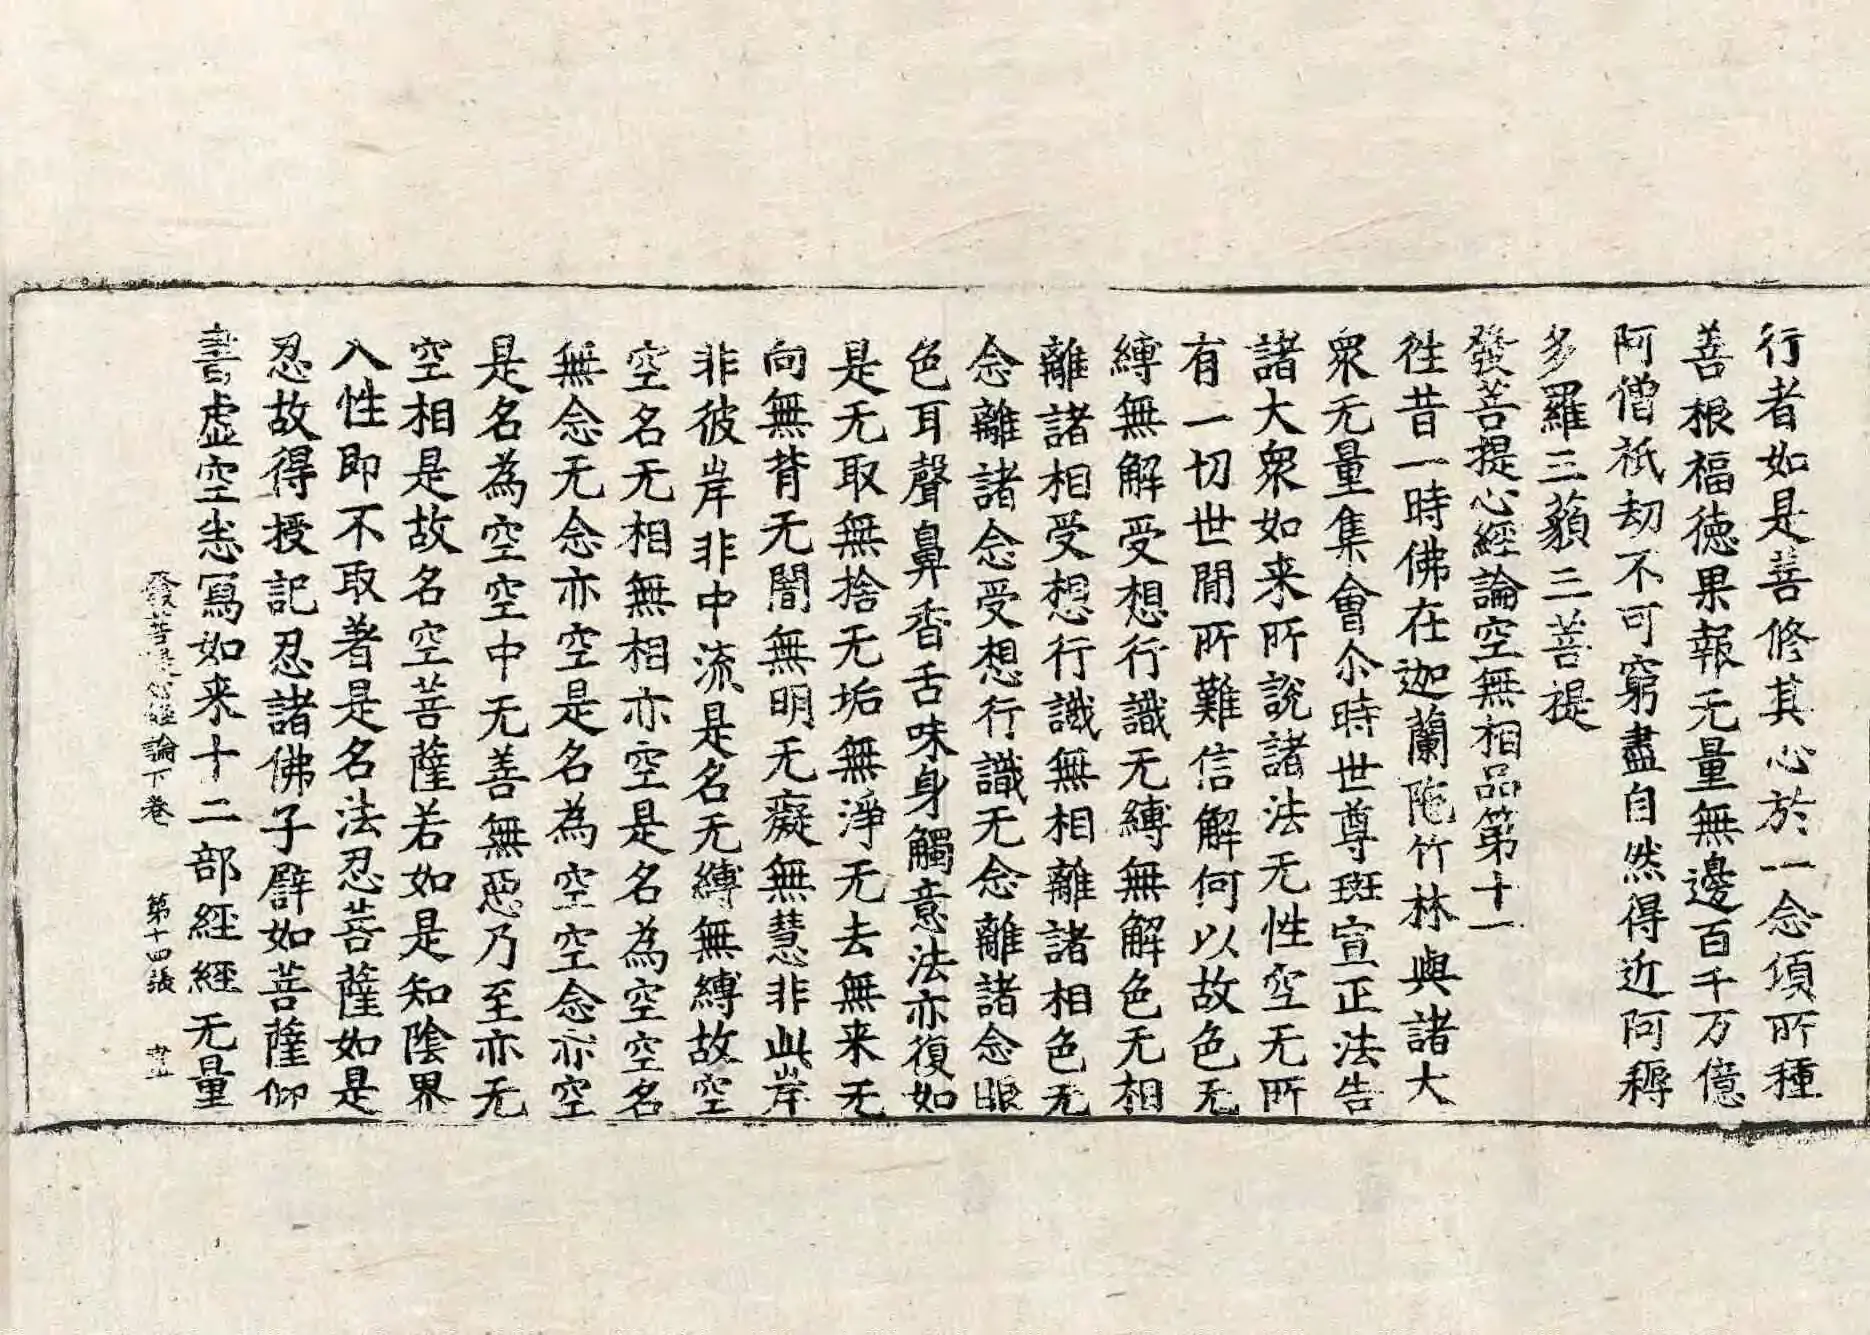 行者如是善修其心於一念頃所種
善根福德果報无量無邊百千万億
阿僧祇劫不可窮盡自然得近阿耨
多羅三藐三菩提
發菩提心經論空無相品第十一
徃昔一時佛在迦蘭陁竹林與諸大
衆无量集會尒時世尊班宣正法告
諸大衆如来所說諸法无性空无所
有一切世閒所難信解何以故色无
縛無解受想行識无縛無解色无相
離諸相受想行識無相離諸相色无
念離諸念受想行識无念離諸念眼
色耳聲鼻香舌味身觸意法亦復如
是无取無捨无垢無淨无去無来无
向無背无闇無明无癡無慧非此岸
非彼岸非中流是名无縛無縛故空
空名无相無相亦空是名為空空名
無念无念亦空是名為空空念亦空
是名為空空中无善無惡乃至亦无
空相是故名空菩薩若如是知陰界
入性即不取著是名法忍菩薩如是
忍故得授記忍諸佛子譬如菩薩仰
書虛空悉寫如来十二部經經无量
發菩提心經論下卷 第十四張 畫